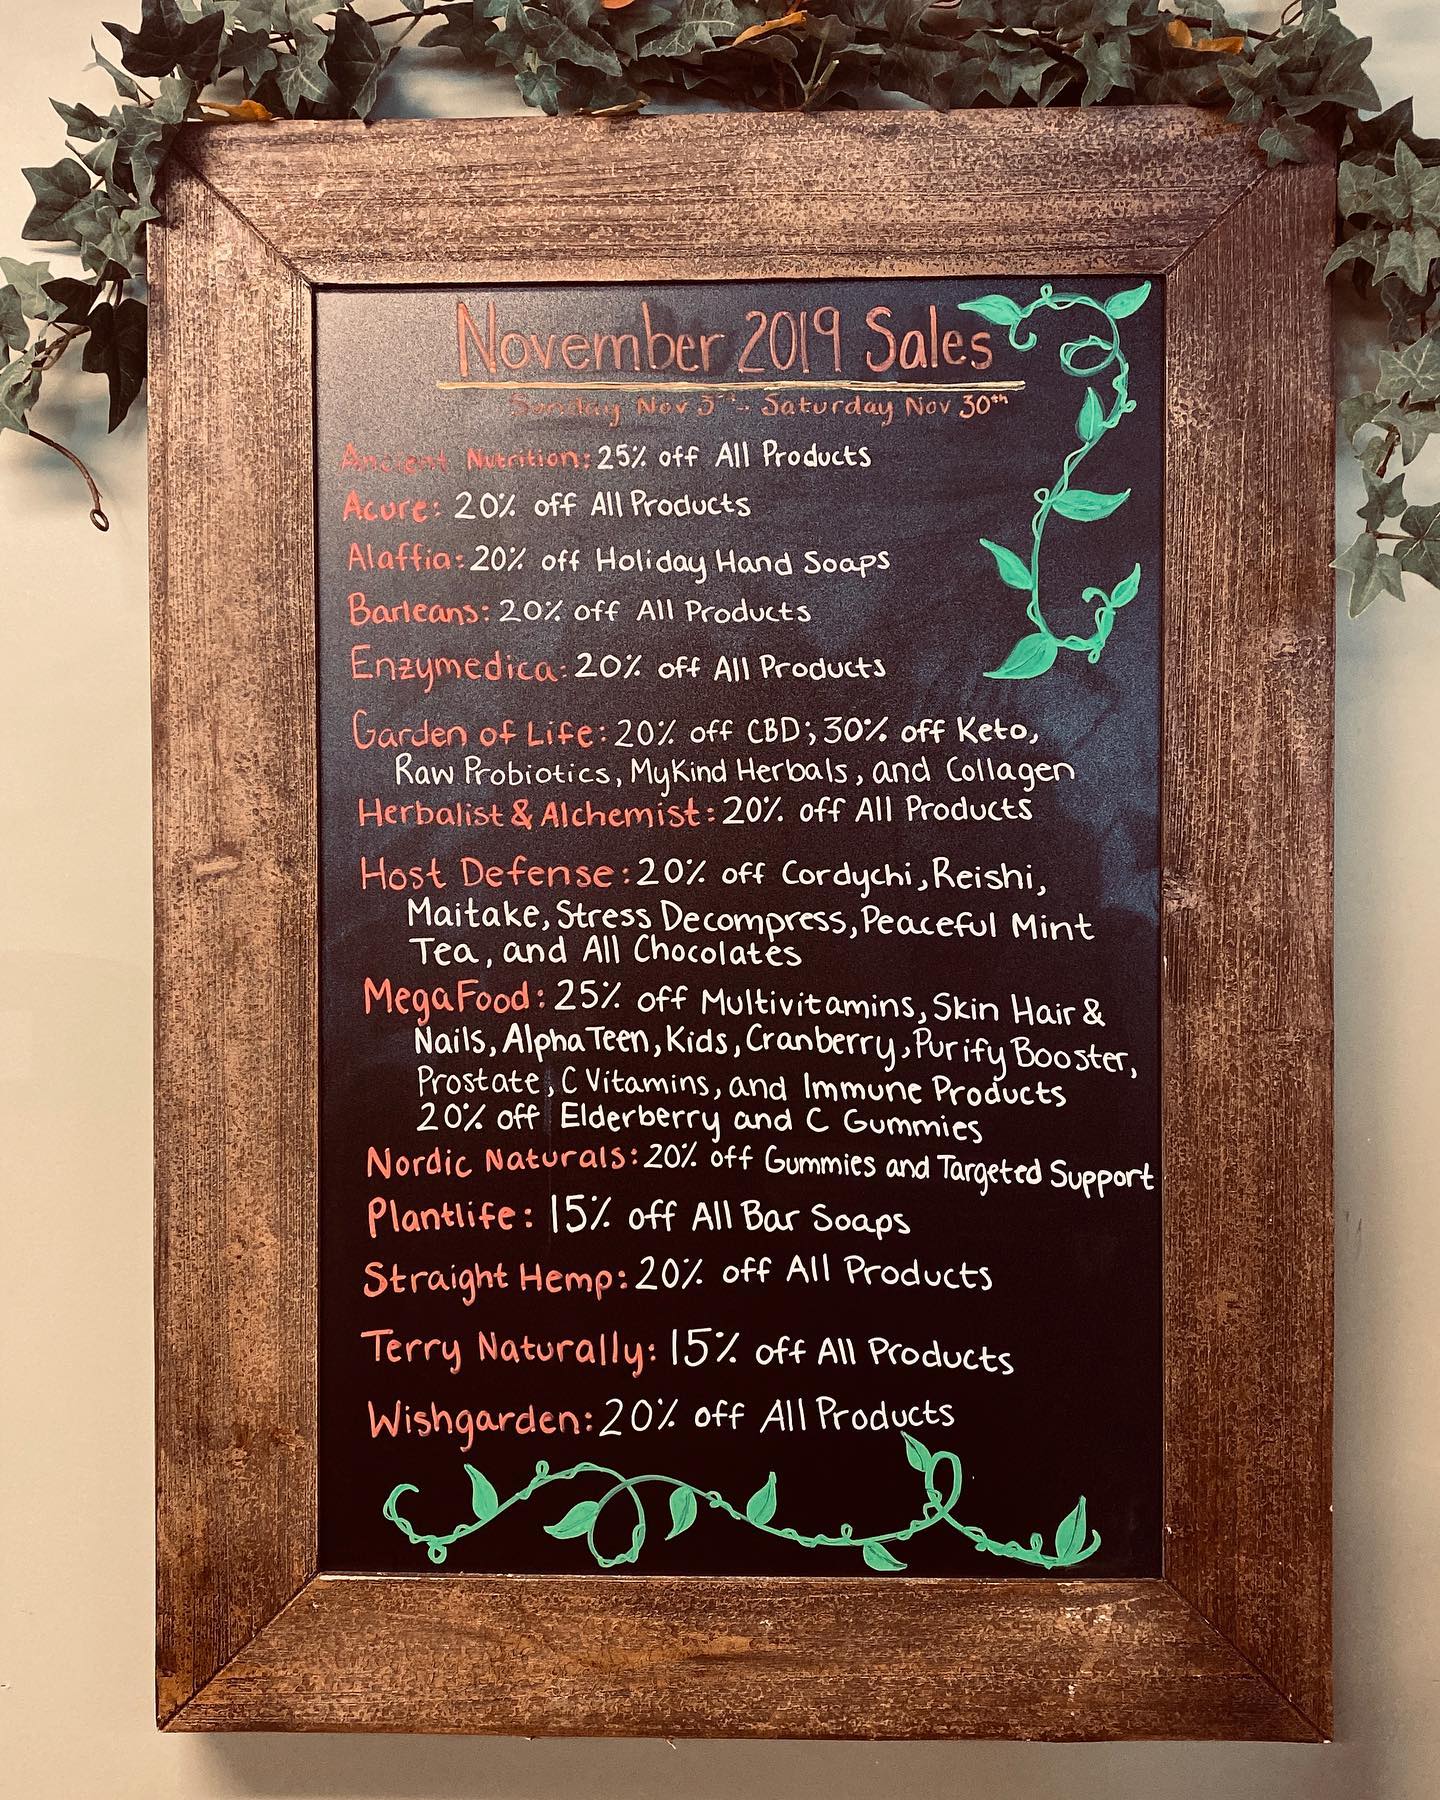 November 2019 Sales
Sunday Nov 3rd - Saturday Nov 30th
Ancient Nutrition: 25% off All Products
Acure: 20% off All Products
Alaffia: 20% off Holiday Hand Soaps
Barleans: 20% off All Products
Enzymedica: 20% off All Products
Garden of Life: 20% off CBD; 30% off Keto,
Raw Probiotics, MyKind Herbals, and Collagen
Herbalist & Alchemist: 20% off All Products
Host Defense: 20% off Cordychi, Reishi,
Maitake, Stress Decompress, Peaceful Mint
Tea, and All Chocolates
MegaFood: 25% off Multivitamins, Skin Hair &
Nails, Alpha Teen, Kids, Cranberry, Purify Booster,
Prostate, C Vitamins, and Immune Products
20% off Elderberry and C Gummies
Nordic Naturals: 20% off Gummies and Targeted Support
Plantlife: 15% off All Bar Soaps
Straight Hemp: 20% off All Products
Terry Naturally: 15% off All Products
Wishgarden: 20% off All Products